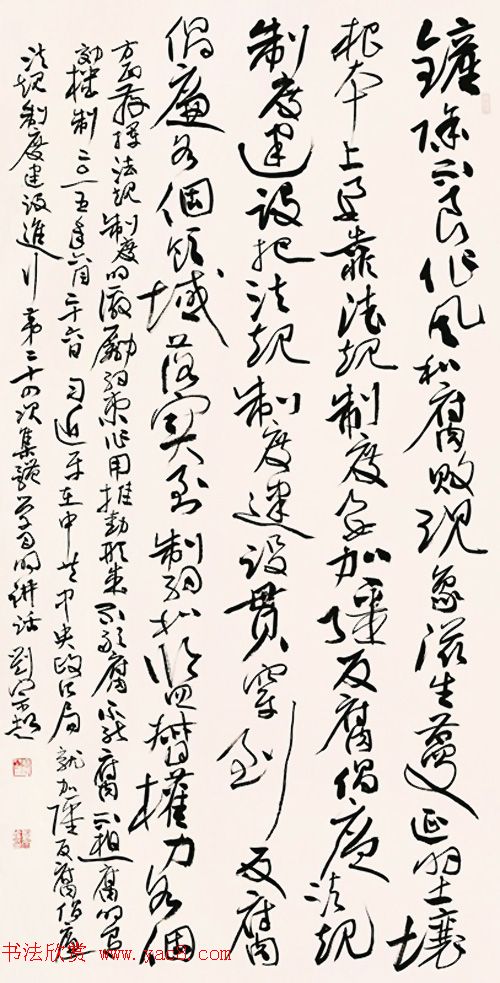 铲除不良作风和腐败现象滋生蔓延的土壤
根本上要靠法规制度加强反腐倡廉法规
制度建设把法规制度建设贯穿到反腐
倡廉各個领域落实到制约和监督權力各個
方面发挥法规制度的激励约束作用推動形成不敢腐不能腐不想腐的有
效机制二〇一五年六月二十六日习近平在中共中央政治局就加强反腐倡廉
法规制度建设進行第二十四次集体学习时的讲话
书法欣赏 www.yac8.com